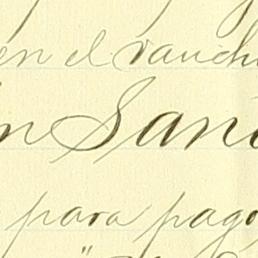 en el ranch
n San
para pago
"